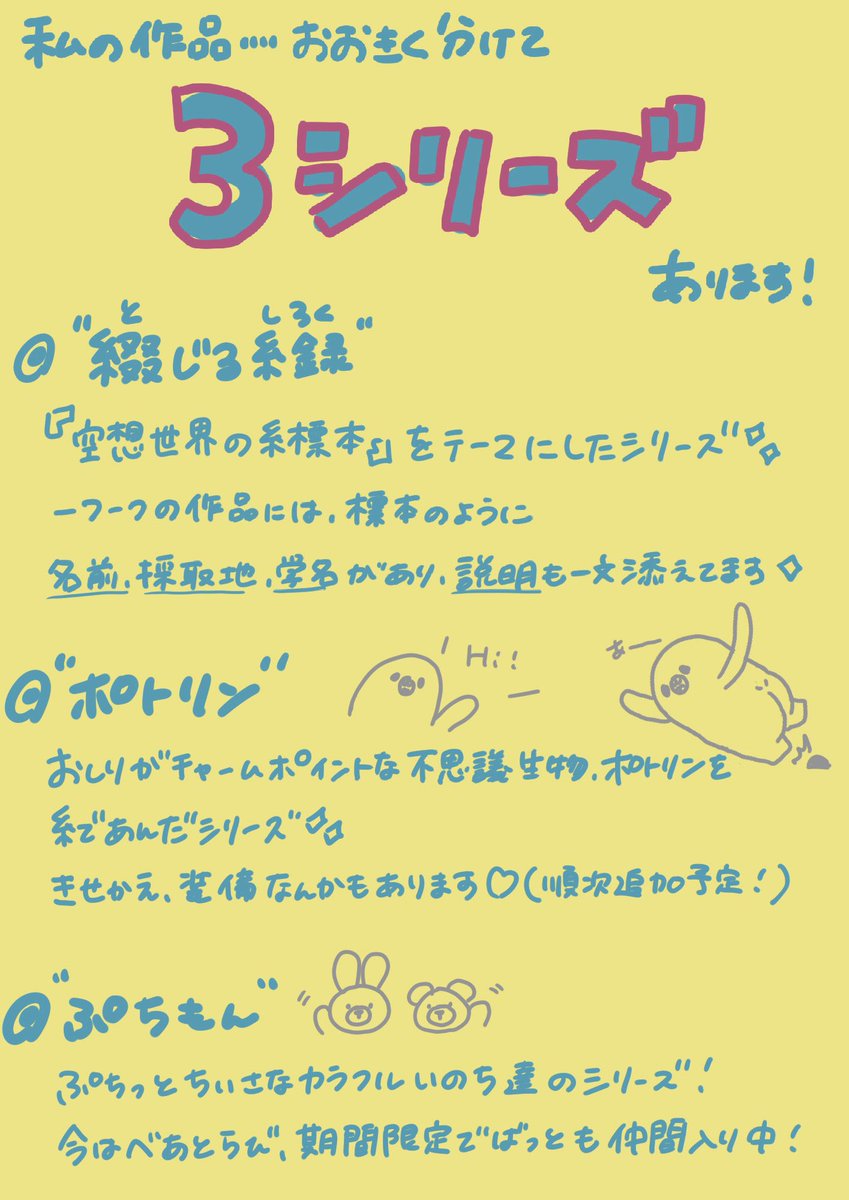 私の作品‥‥おおきく分けて
3シリーズ
あります!
◎"綴じる糸録"
と しろく
『空想世界の糸標本』をテーマにしたシリーズ
一つ一つの作品には、標本のように
名前、採取地、学名があり、説明も一文添えてます
◎"ポトリン"
Hi!
あー
おしりがチャームポイントな不思議生物、ポトリンを
糸であんだシリーズ
きせかえ、装備なんかもあります♡(順次追加予定!)
◎"ぷちもん"
ぷちっとちいさなカラフルいのち達のシリーズ!
今はべあとらび、期間限定でばっとも仲間入り中!